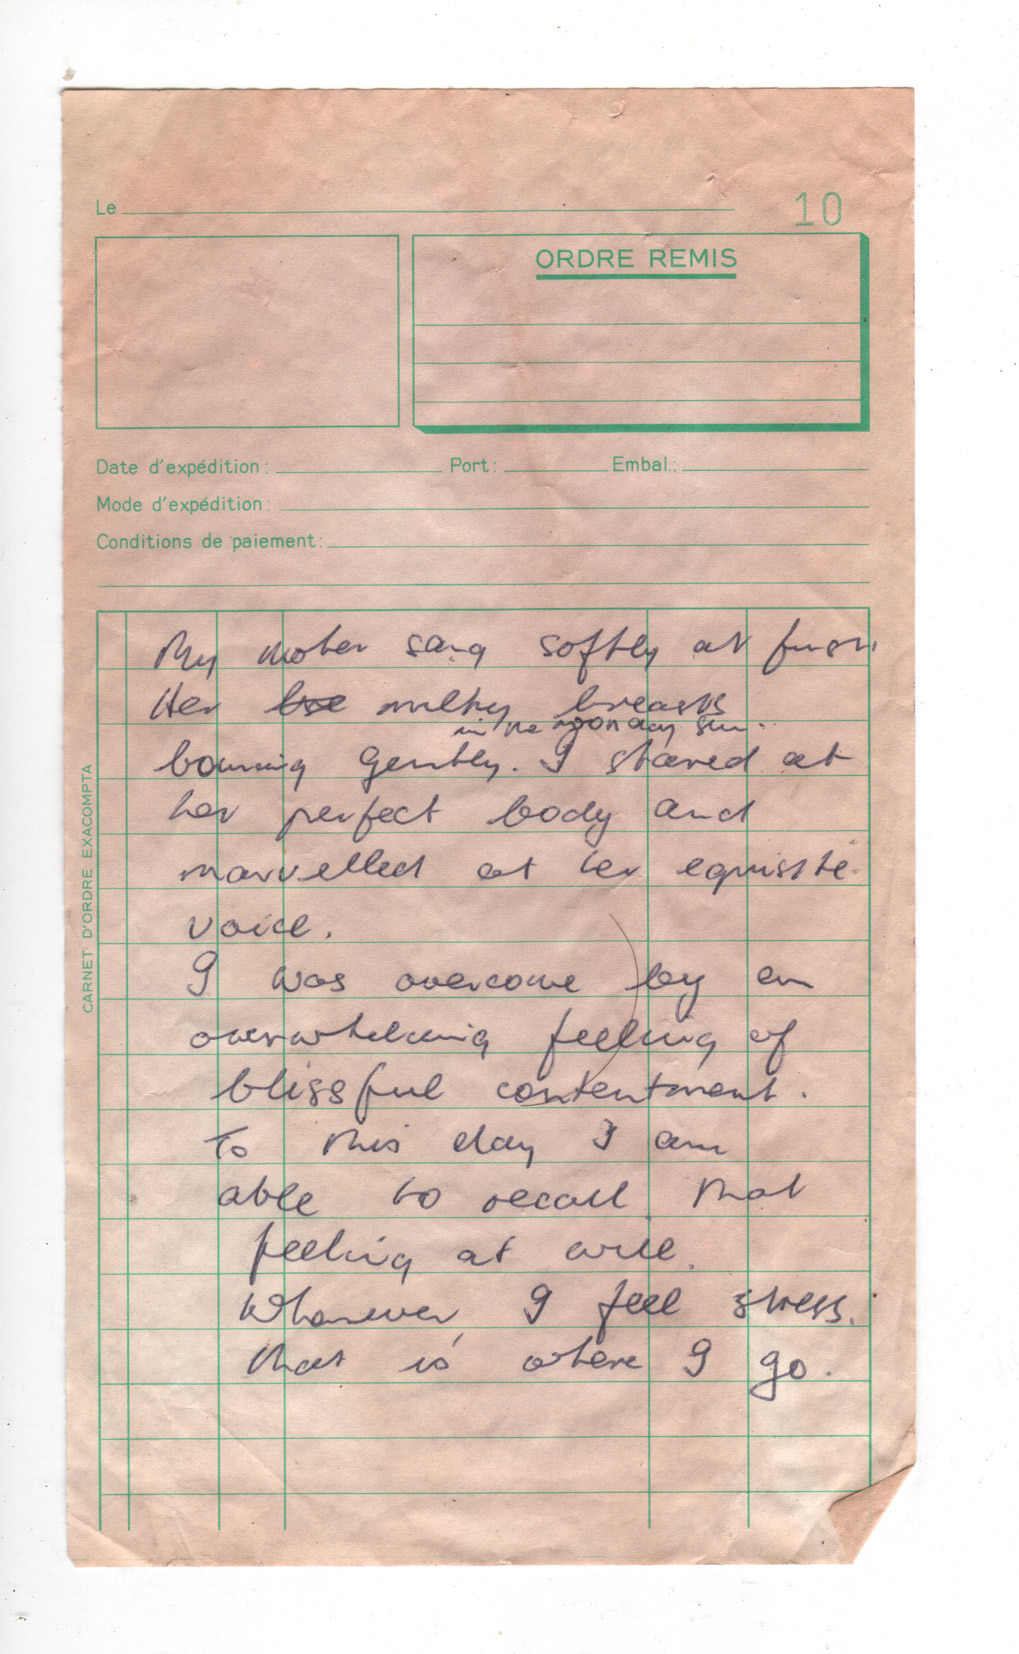 Le
10
ORDRE REMIS
Date d'expédition: Port: Embal.:
Mode d'expédition:
Conditions de paiement:
CARNET D'ORDRE EXACOMPTA
My mother sang softly at first.
Her milky breasts
in the noon day sun..
gently. I stared at
her perfect body and
marvelled at her equisite
voice.
I was overcome by an
overwhelming feeling of
blissful contentment.
To this day I am
able to recall that
feeling at will.
Whenever, I feel stress.
that is where I go.